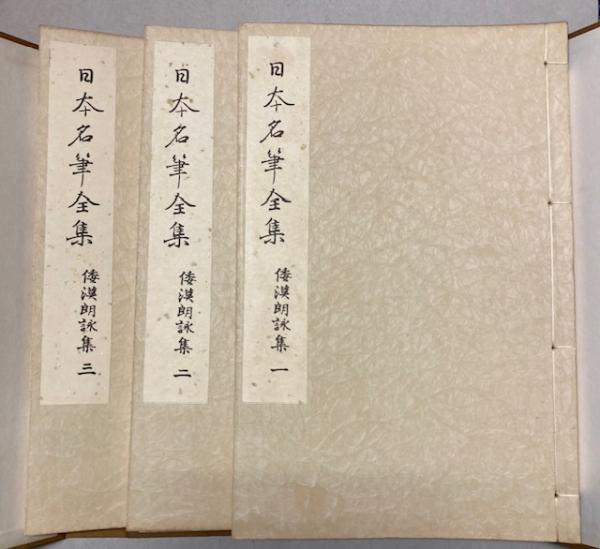 日本名筆全集
倭漢朗詠集 一
日本名筆全集
倭漢朗詠集 二
日本名筆全集
倭漢朗詠集 三